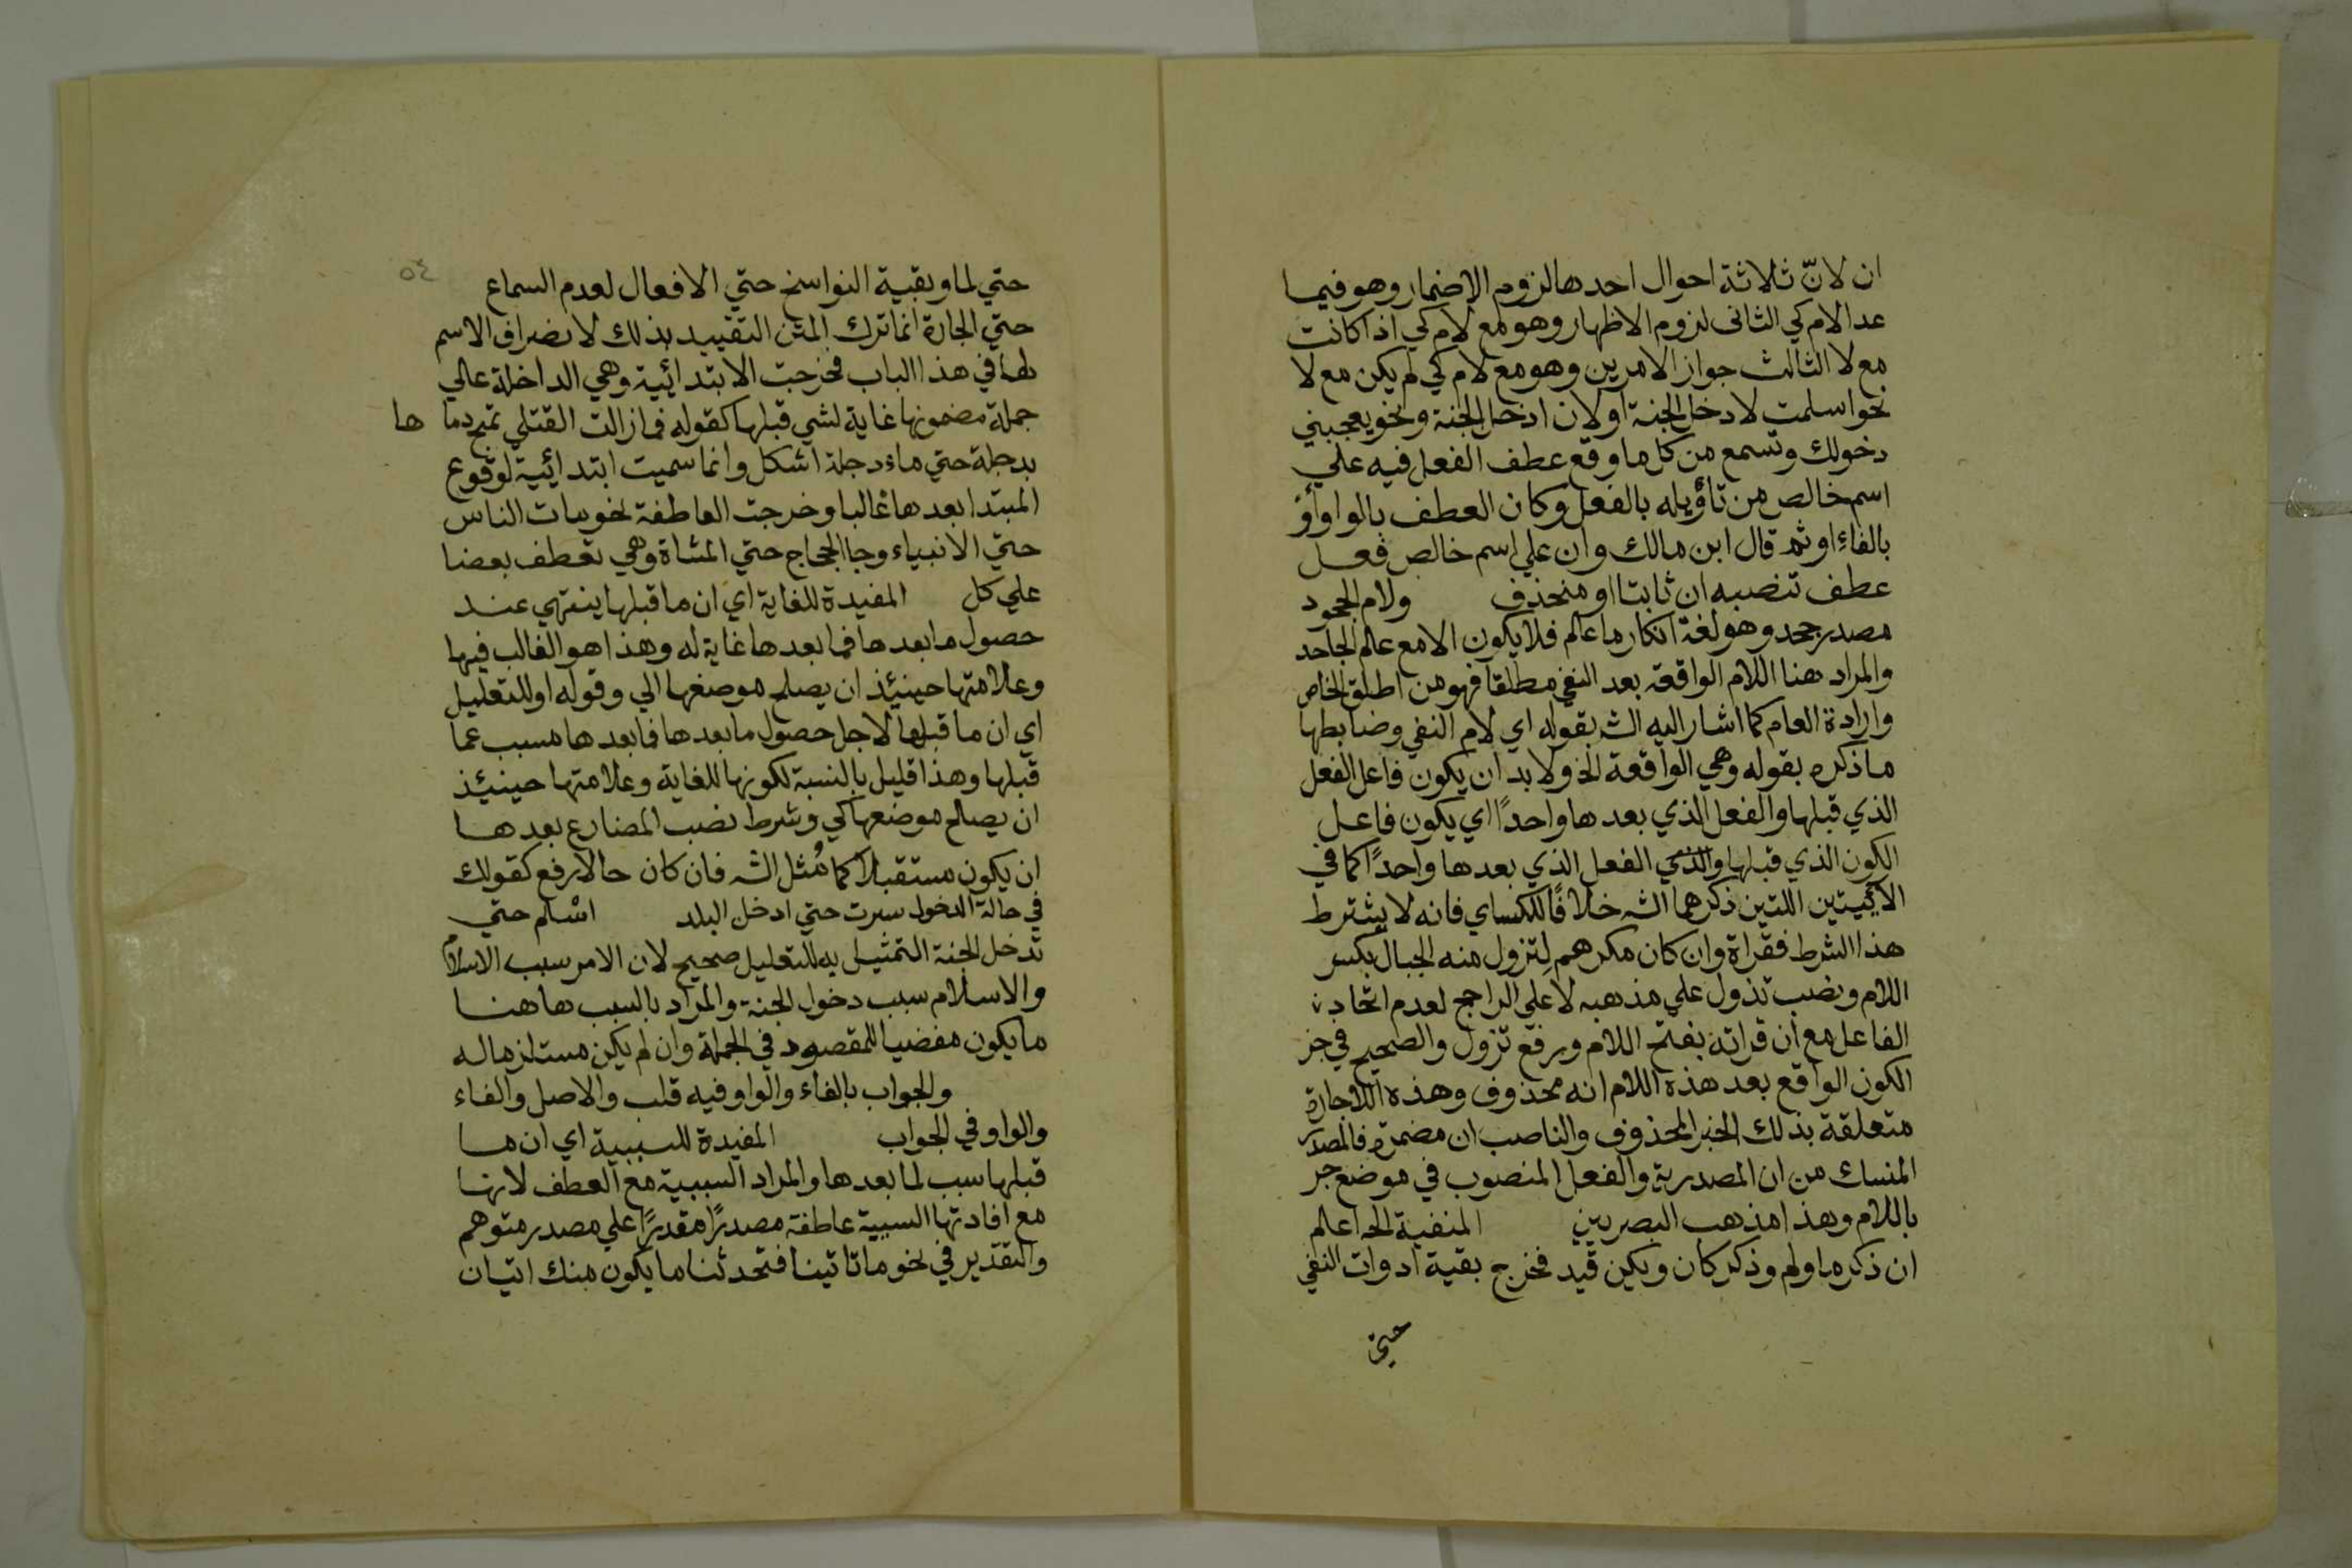 ان لانّ ثلاثة احوال احدها لزوم الاضمار وهو فيما
عدا لام كي الثانى لزوم الاظهار وهو مع لام كي اذا كانت
مع لا الثالث جواز الامرين وهو مع لام كي لم يكن مع لا
نحو اسلمت لادخل الجنة او لان ادخل الجنة ونحو يعجبني
دخولك وتسمع من كل ما وقع عطف الفعل فيه علي
اسم خالص من تأويله بالفعل وكان العطف بالواو أو
بالفاءِ او ثم قال ابن مالك وان علي اسم خالص فعل
عطف تنصبه ان ثابتا او منحذف ولام الجحود
مصدر جحد وهو لغة انكار ما علم فلا يكون الا مع علم الجاحد
والمراد هنا اللام الواقعة بعد النفي مطلقا فهو من اطلق الخاص
وارادة العام كما اشار اليه الشـ بقوله اي لام النفي وضابطها
ما ذكره بقوله وهي الواقعة الخ ولا بد ان يكون فاعل الفعل
الذي قبلها والفعل الذي بعدها واحداً اي يكون فاعل
الكون الذي قبلها والذي الفعل الذي بعدها واحداً كما في
الآئيتين اللتين ذكرهما الشـ خلافًا للكساي فانه لا يشترط
هذا الشرط فقراة وان كان مكرهم لِتزول منه الجبال بكسر
اللام ونصب تذول علي مذهبه لا على الراجح لعدم اتحاد
الفاعل مع ان قراته بفتح اللام ورفع تزول والصحيح في خبر
الكون الواقع بعد هذه اللام انه محذوف وهذه اللاجارة
متعلقة بذلك الخبر المحذوف والناصب ان مضمرة فالمصدر
المنسبك من ان المصدرية والفعل المنصوب في موضع جر
باللام وهذا مذهب البصريين المنفية الخ اعلم
ان ذكر ما ولم وذكر كان ويكن قيد فخرج بقية ادوات النفي
حتي
٥٤
حتي لما وبقية النواسخ حتي الافعال لعدم السماع
حتي الجارة انما ترك المتن التقييد بذلك لانصراف الاسم
لها في هذا الباب فخرجت الابتدائية وهي الداخلة علي
جملة مضمونها غاية لشي قبلها كقوله فما زالت القتلي تمج دما ها
بدجلة حتي ماء دجلة اشكل وانما سميت ابتدائية لوقوع
المبتدا بعدها غالبا وخرجت العاطفة نحو مات الناس
حتي الانبياء وجا الحجاج حتي المشاة وهي تعطف بعضا
علي كل المفيدة للغاية اي ان ما قبلها ينتهي عند
حصول ما بعدها فما بعدها غاية له وهذا هو الغالب فيها
وعلامتها حينئذ ان يصلح موضعها الي وقوله او للتعليل
اي ان ما قبلها لاجل حصول ما بعدها فما بعدها مسبب عما
قبلها وهذا قليل بالنسبة لكونها للغاية وعلامتها حينئذ
ان يصلح موضعها كي وشرط نصب المضارع بعدها
ان يكون مستقبلا كما مُثل الشـ فان كان حالا رفع كقولك
في حالة الدخول سرت حتي ادخل البلد اسْلم حتي
تدخل الجنة التمثيل به للتعليل صحيح لان الامر سبب الاسلام
والاسلام سبب دخول الجنة والمراد بالسبب هاهنا
ما يكون مفضيا للمقصود في الجملة وان لم يكن مستلزما له
والجواب بالفاء والواو فيه قلب والاصل والفاء
والواو في الجواب المفيدة للسببية اي ان ما
قبلها سبب لما بعدها والمراد السببية مع العطف لانها
مع افادتها السببية عاطفة مصدرًا مقدرًا علي مصدر متوهم
والتقدير في نحو ما تاتينا فتحدثنا ما يكون منك اتيان